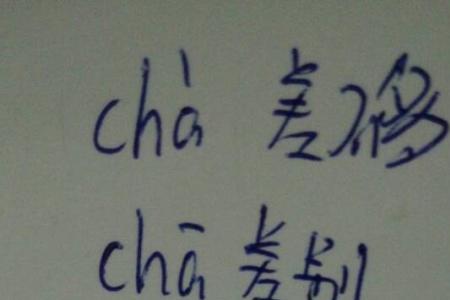 chà 差不多
chā 差别